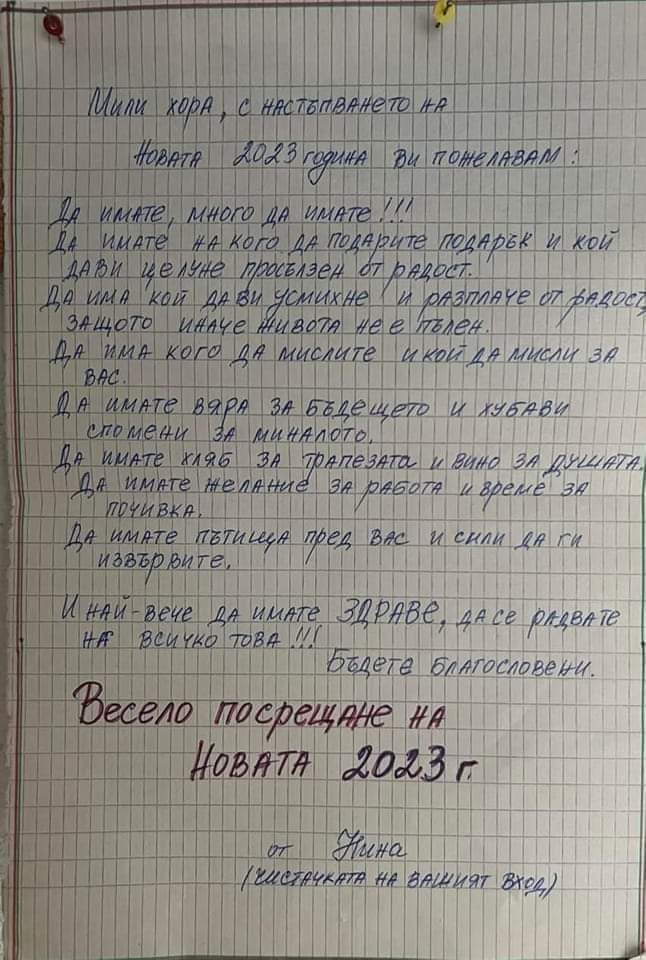 Мили хора, с настъпването на
новата 2023 година Ви пожелавам:
Да имате, много да имате!!!
Да имате на кого да подарите подарък и кой
да ви целуне просълзен от радост.
Да има кой да ви усмихне и разплаче от радост,
защото иначе живота не е пълен.
Да има кого да мислите и кой да мисли за
вас.
Да имате вяра за бъдещето и хубави
спомени за миналото.
Да имате хляб за трапезата и вино за душата.
Да имате желание за работа и време за
почивка.
Да имате пътища пред вас и сили да ги
извървите.
И най-вече да имате ЗДРАВЕ, да се радвате
на всичко това!!!
Бъдете благословени.
Весело посрещане на
Новата 2023 г.
от Нина
(чистачката на вашият вход)